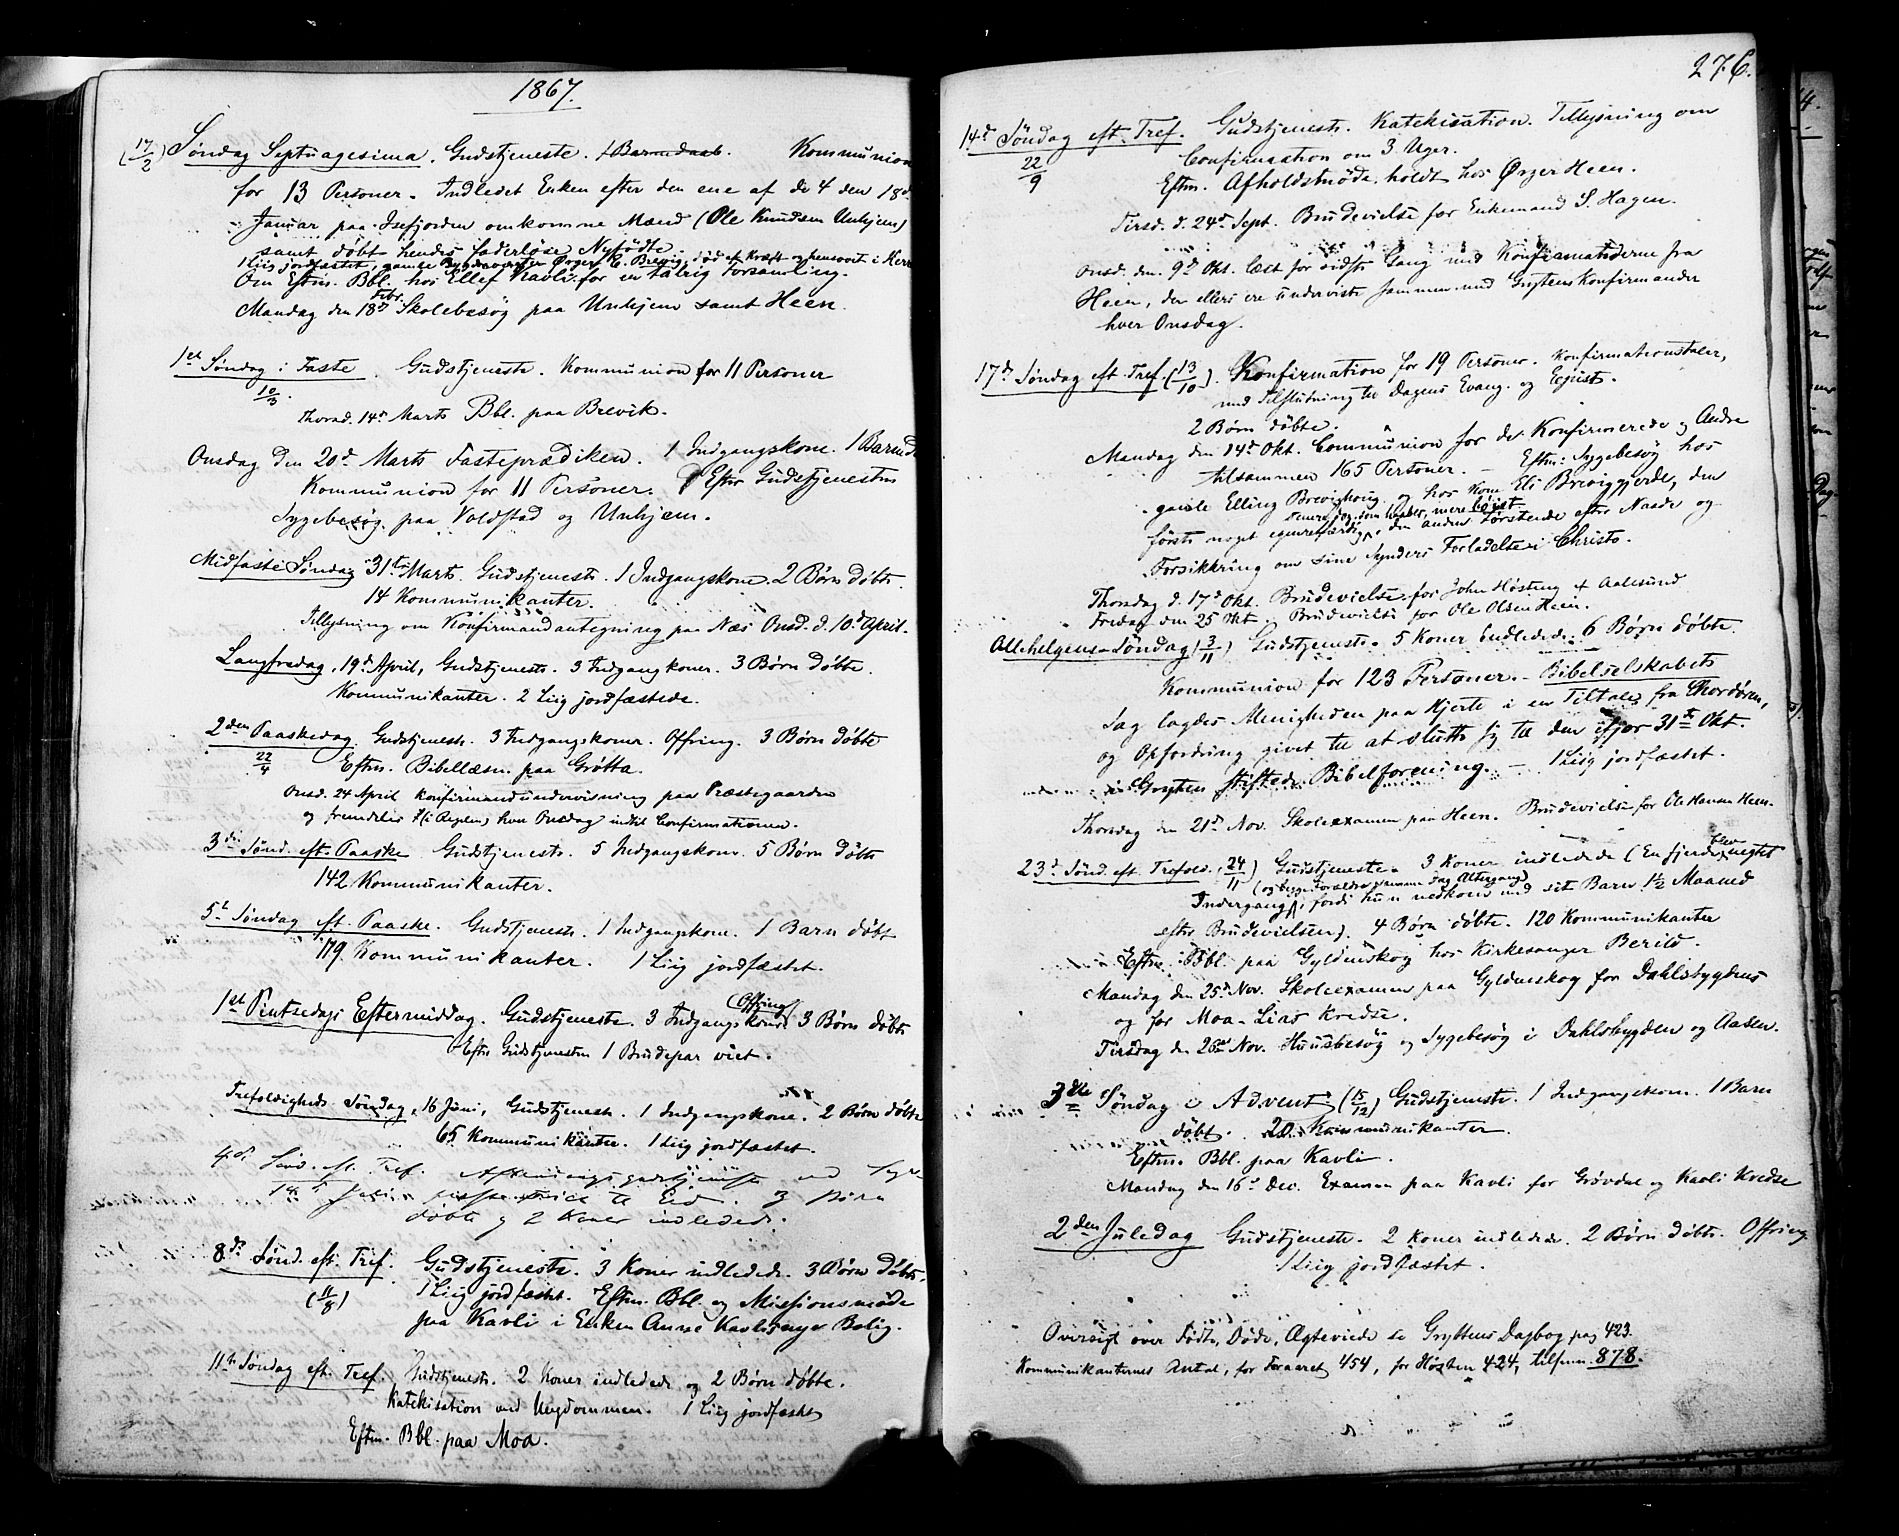 1867.
(17/2) Søndag Septuagesima. Gudstjeneste. 1 Barnedaab. Kommunion
for 13 Personer. Indledet Enken efter den ene af de 4 den 18d
Januar paa Isefjorden omkomne Mænd (Ole Knudsen Unhjem)
samt døbt hendes faderløse Nyfødte.
1 Liig jordfæstet, gamle Ørger E. Brevig, død af Kræft og hensovet i
Om Eftm. Bbl. hos Ellef Kavli for en talrig Forsamling.
Mandag den 18d Febr. Skolebesøg paa Unhjem samt Heen.
1st Søndag i Faste. Gudstjeneste. Kommunion for 11 Personer
10/3
Thorsd. 14d Marts Bbl. paa Brevik.
Onsdag den 20d Marts Fasteprædiken. 1 Indgangskone. 1 Barn d
Kommunion for 11 Personer. Efter Gudstjenesten
Sygebesøg paa Voldstad og Unhjem.
Midfaste Søndag 31te Marts. Gudstjeneste. 1 Indgangskone. 2 Børn døbte.
14 Kommunikanter.
Tillysning om Konfirmandantegning paa Næs Onsd. d. 10d April.
Langfredag, 19d April, Gudstjeneste. 3 Indgangkoner. 3 Børn døbte.
Kommunikanter. 2 Liig jordfæstede.
2den Paaskedag Gudstjeneste. 3 Indgangskoner. Offring. 3 Børn døbte
22/4 Eftm. Bibellæsn. paa Grøtta.
Onsd. 24 April Konfirmandundervisning paa Præstegaarden
og fremdeles (i Reglen) hver Onsdag indtil Confirmationen.
3die Sønd. eft. Paaske Gudstjeneste. 5 Indgangskoner. 5 Børn døbte
142 Kommunikanter.
5te Søndag eft. Paaske. Gudstjeneste. 1 Indgangskone. 1 Barn døbt
179 Kommunikanter. 1 Liig jordfæstet.
1st Pintsedags Eftermiddag. Gudstjeneste. 3 Indgangskoner (Offring) 3 Børn døbte
Efter Gudstjenesten 1 Brudepar viet.
Trefoldigheds Søndag, 16 Juni, Gudstjeneste. 1 Indgangskone. 2 Børn døbte
65 Kommunikanter. 1 Liig jordfæstet.
4de Sønd. eft. Tref.
14d til Eid. 3 Børn
døbte og 2 Koner indledede.
8de Sønd. eft. Tref. Gudstjeneste. 3 Koner indlede. 3 Børn døbte.
(11/8) 1 Liig jordfæstet. Eftm. Bbl. og Missionsmøde
paa Kavli i Enken Anne Kavlis nye Bolig.
11te Søndag eft. Tref. Gudstjeneste. 2 Koner indledede og 2 Børn døbte.
Katekisation med Ungdommen. 1 Liig jordfæstet
Eftm. Bbl. paa Moa.
276.
14d Søndag eft. Tref. Gudstjeneste. Katekisation. Tillysning om
22/9 Confirmation om 3 Uger.
Eftm. Afholdsmøde holdt hos Ørger Heen.
Tirsd. d. 24d Sept. Brudevielse for Enkemand S. Hagen.
Onsd. den 9d Okt. læst for sidste Gang med Konfirmanderne fra
Heen, der ellers ere underviste sammen med Gryttens Konfirmander
hver Onsdag.
17d Søndag eft. Tref. (13/10). Konfirmation for 19 Personer. Konfirmationstaler,
med Tilslutning til Dagens Evang. og Epist.
2 Børn døbte.
Mandag den 14d Okt. Communion for de Konfirmerede og Andre
tilsammen 165 Personer. - Eftm. Sygebesøg hos
gamle Elling Brevighoug og hos Kone Eli Breviggjerde, den
første noget egenretfærdig, senere dog, som haabes, mere bøiet, den anden tørstende efter Naade og
Forsikkring om sine Synders Forladelse i Christo.
Thorsdag d. 17d Okt. Brudevielse for John Høsteng af Aalesund
Fredag den 25 Okt. Brudevielse for Ole Olsen Heen.
Allehelgens-Søndag (3/11) Gudstjeneste. 5 Koner Indledede. 6 Børn døbte.
Kommunion for 123 Personer. - Bibelselskabets
Sag lagdes Menigheden paa Hjerte i en Tiltale fra Chordøren,
og Opfordring givet til at slutte sig til den ifjor 31te Okt.
i Grytten stiftede Bibelforening. - 1 Liig jordfæstet.
Thorsdag den 21d Nov. Skoleexamen paa Heen. Brudevielse for Ole Heen.
23d Sønd. eft. Trefold. (24/11) Gudstjeneste. 3 Koner indledede (En fjerde blev negtet
Indergang (og begge Forældre samme Dag Altergang), fordi hun nedkom med sit Barn 1½ Maaned
efter Brudevielsen). 4 Børn døbte. 120 Kommunikanter
Eftm. Bbl. paa Gyldenskog hos Kirkesanger Berild.
Mandag den 25d Nov. Skoleexamen paa Gyldenskog for Dahlsbygdens
og for Moa-Lias Kredse.
Tirsdag den 26d Nov. Huusbesøg og Sygebesøg i Dahlsbygden og Aasen.
3die Søndag i Advent (15/12) Gudstjeneste. 1 Indgangskone. 1 Barn
døbt. 20 Kommunikanter.
Eftm. Bbl. paa Kavli.
Mandag den 16d Dec. Examen paa Kavli for Grøvdal og Kavli Kredse
2den Juledag Gudstjeneste. 2 Koner indledede. 2 Børn døbte. Offring.
1 Liig jordfæstet.
Oversigt over Fødte, Døde, Ægteviede se Gryttens Dagbog pag 423.
Kommunikanternes Antal, for Foraaret 454, for Høsten 424, tilsmn. 878.